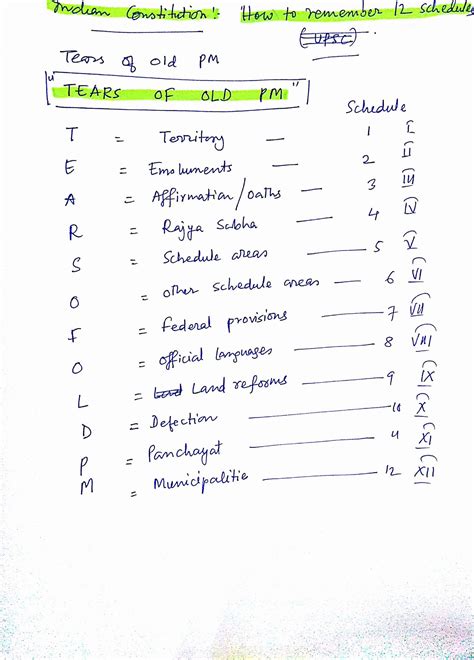 Indian Constitution :- How to remember 12 schedules
(UPSC).
Tears of old PM
"TEARS OF OLD PM"
Schedule
T = Territory — 1 I
E = Emoluments — 2 II
A = Affirmation/oaths — 3 III
R = Rajya Sabha — 4 IV
S = Schedule areas — 5 V
O = other schedule areas — 6 VI
F = Federal provisions — 7 VII
O = official languages — 8 VIII
L = Land reforms — 9 IX
D = Defection — 10 X
P = Panchayat — 11 XI
M = Municipalitie — 12 XII